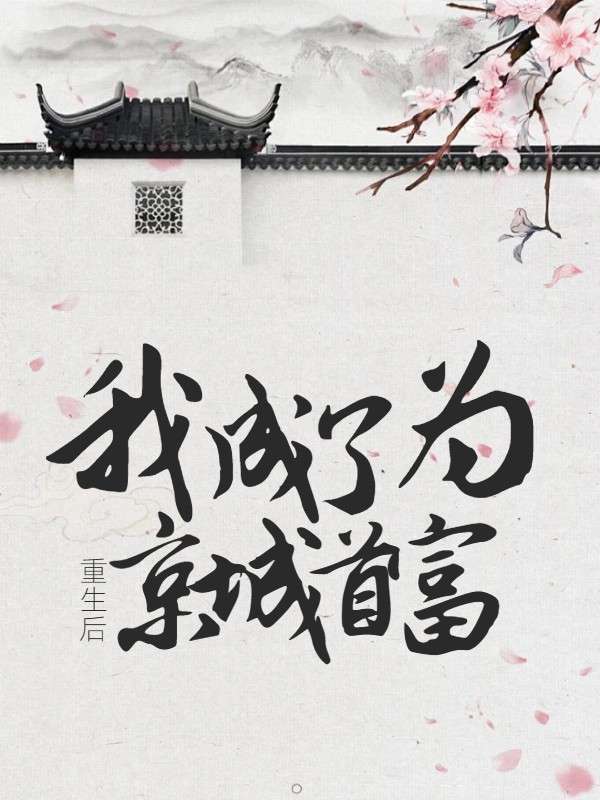 我成了为
重生后
京城首富